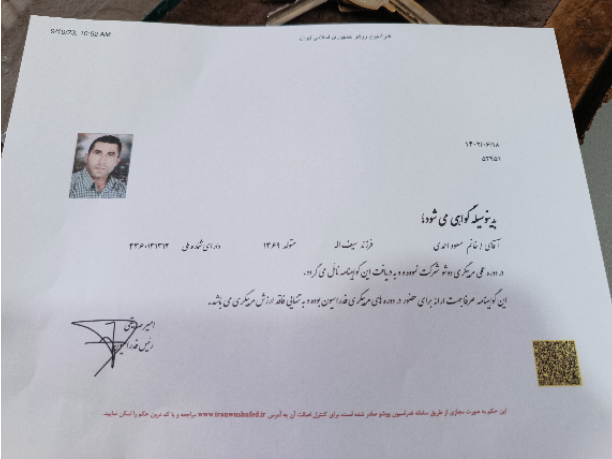 9/10/23, 10:52 AM
فدراسیون ووشو جمهوری اسلامی ایران
۱۴۰۲/۰۶/۱۸
۵۳۹۵۱
بدینوسیله گواهی می شود؛
آقای / خانم مسعود احمدی فرزند سیف اله متولد ۱۳۶۹ دارای شماره ملی
در دوره ملی مربیگری ووشو شرکت نموده و به دریافت این گواهینامه نائل می گردد.
این گواهینامه صرفا جهت ارائه برای حضور در دوره های مربیگری فدراسیون بوده و به تنهایی فاقد ارزش مربیگری می باشد.
امیر صدیقی
رئیس فدراسیون
این حکم به صورت مجازی از طریق سامانه فدراسیون ووشو صادر شده است، برای کنترل اصالت آن به آدرس www.iranwushufed.ir مراجعه و یا کد ترین حکم را اسکن نمایید.